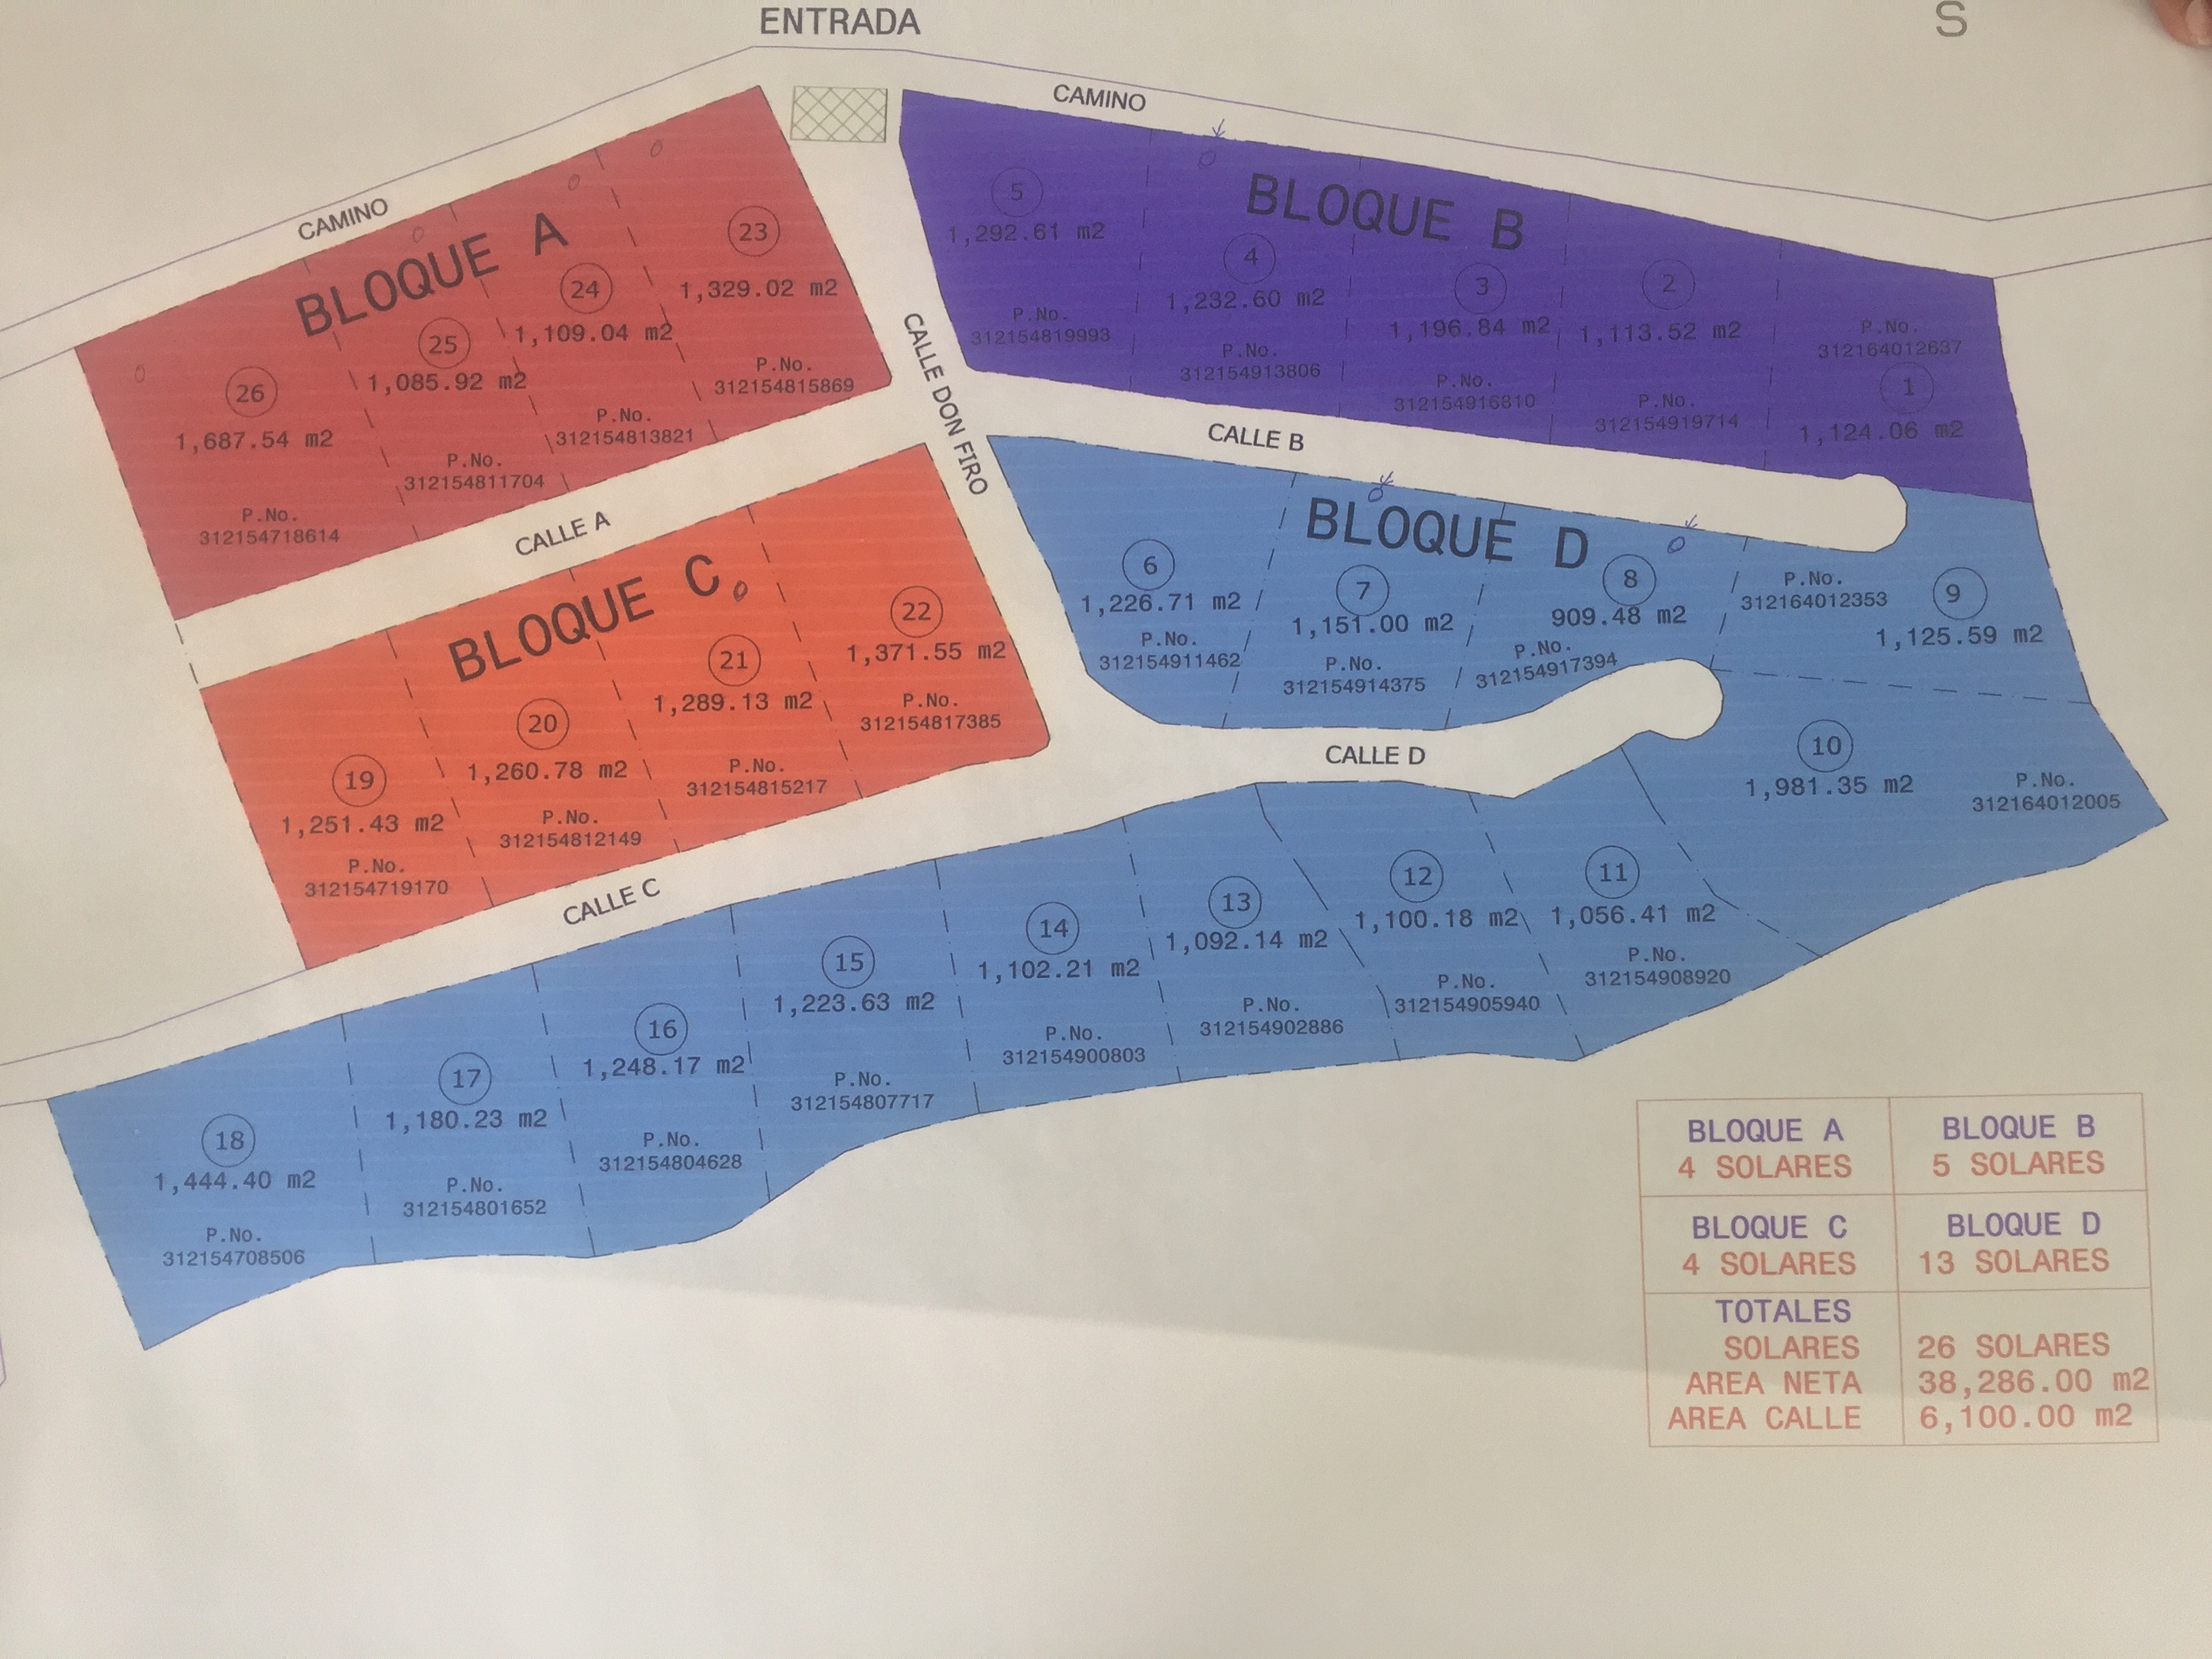 ENTRADA
S
CAMINO
CAMINO
BLOQUE A
23
1,329.02 m2
P.No.
312154815869
24
1,109.04 m2
P.No.
312154813821
25
1,085.92 m2
P.No.
312154811704
26
1,687.54 m2
P.No.
312154718614
BLOQUE B
5
1,292.61 m2
P.No.
312154819993
4
1,232.60 m2
P.No.
312154913806
3
1,196.84 m2
P.No.
312154916810
2
1,113.52 m2
P.No.
312154919714
P.No.
312164012637
1
1,124.06 m2
CALLE DON FIRO
CALLE A
CALLE B
BLOQUE C
22
1,371.55 m2
P.No.
312154817385
21
1,289.13 m2
P.No.
312154815217
20
1,260.78 m2
P.No.
312154812149
19
1,251.43 m2
P.No.
312154719170
BLOQUE D
6
1,226.71 m2
P.No.
312154911462
7
1,151.00 m2
P.No.
312154914375
8
909.48 m2
P.No.
312154917394
P.No.
312164012353
9
1,125.59 m2
10
1,981.35 m2
P.No.
312164012005
CALLE D
CALLE C
11
1,056.41 m2
P.No.
312154908920
12
1,100.18 m2
P.No.
312154905940
13
1,092.14 m2
P.No.
312154902886
14
1,102.21 m2
P.No.
312154900803
15
1,223.63 m2
P.No.
312154807717
16
1,248.17 m2
P.No.
312154804628
17
1,180.23 m2
P.No.
312154801652
18
1,444.40 m2
P.No.
312154708506
BLOQUE A
4 SOLARES
BLOQUE B
5 SOLARES
BLOQUE C
4 SOLARES
BLOQUE D
13 SOLARES
TOTALES
SOLARES 26 SOLARES
AREA NETA 38,286.00 m2
AREA CALLE 6,100.00 m2